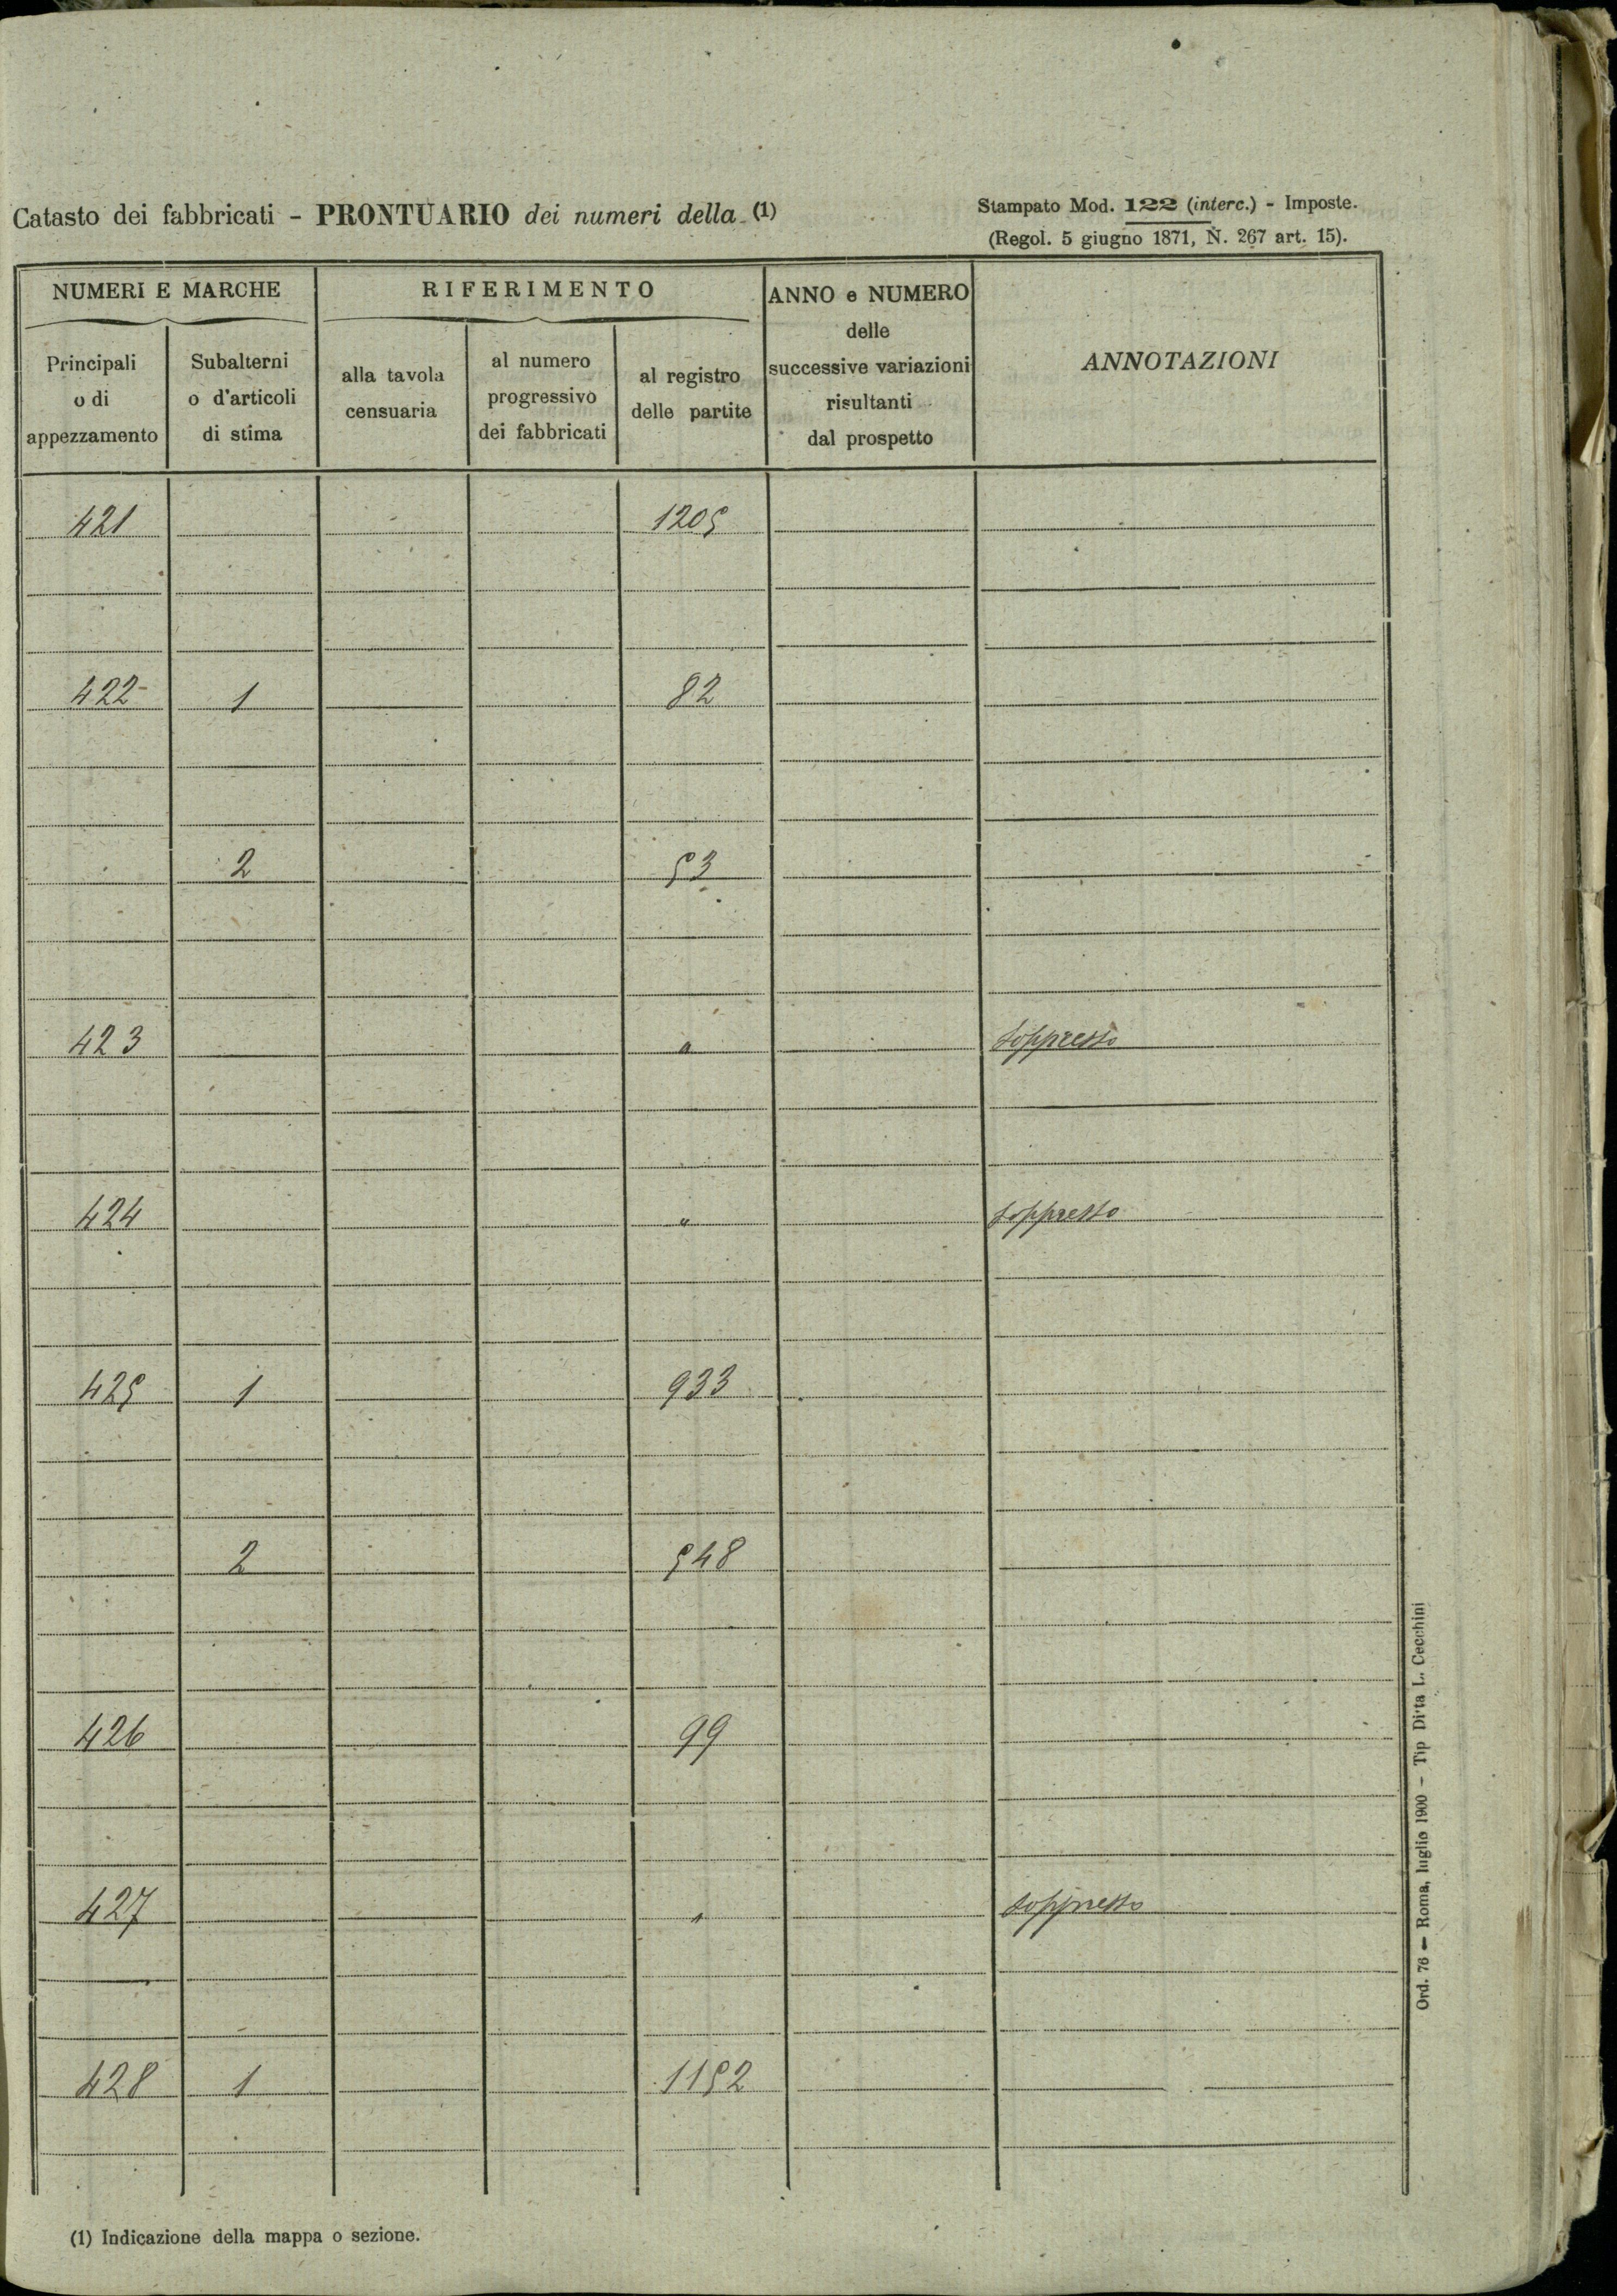 Catasto dei fabbricati - PRONTUARIO dei numeri della (1)
Stampato Mod. 122 (interc.) - Imposte.
(Regol. 5 giugno 1871, N. 267 art. 15).
NUMERI E MARCHE
RIFERIMENTO
ANNO e NUMERO
delle
successive variazioni
risultanti
dal prospetto
ANNOTAZIONI
Principali
o di
appezzamento
Subalterni
o d'articoli
di stima
alla tavola
censuaria
al numero
progressivo
dei fabbricati
al registro
delle partite
421 1205
422 1 82
2 53
423 " soppresso
424 " soppresso
425 1 933
2 548
426 99
427 " soppresso
428 1 1152
(1) Indicazione della mappa o sezione.
Ord. 76 - Roma, luglio 1900 - Tip Ditta L. Cecchini